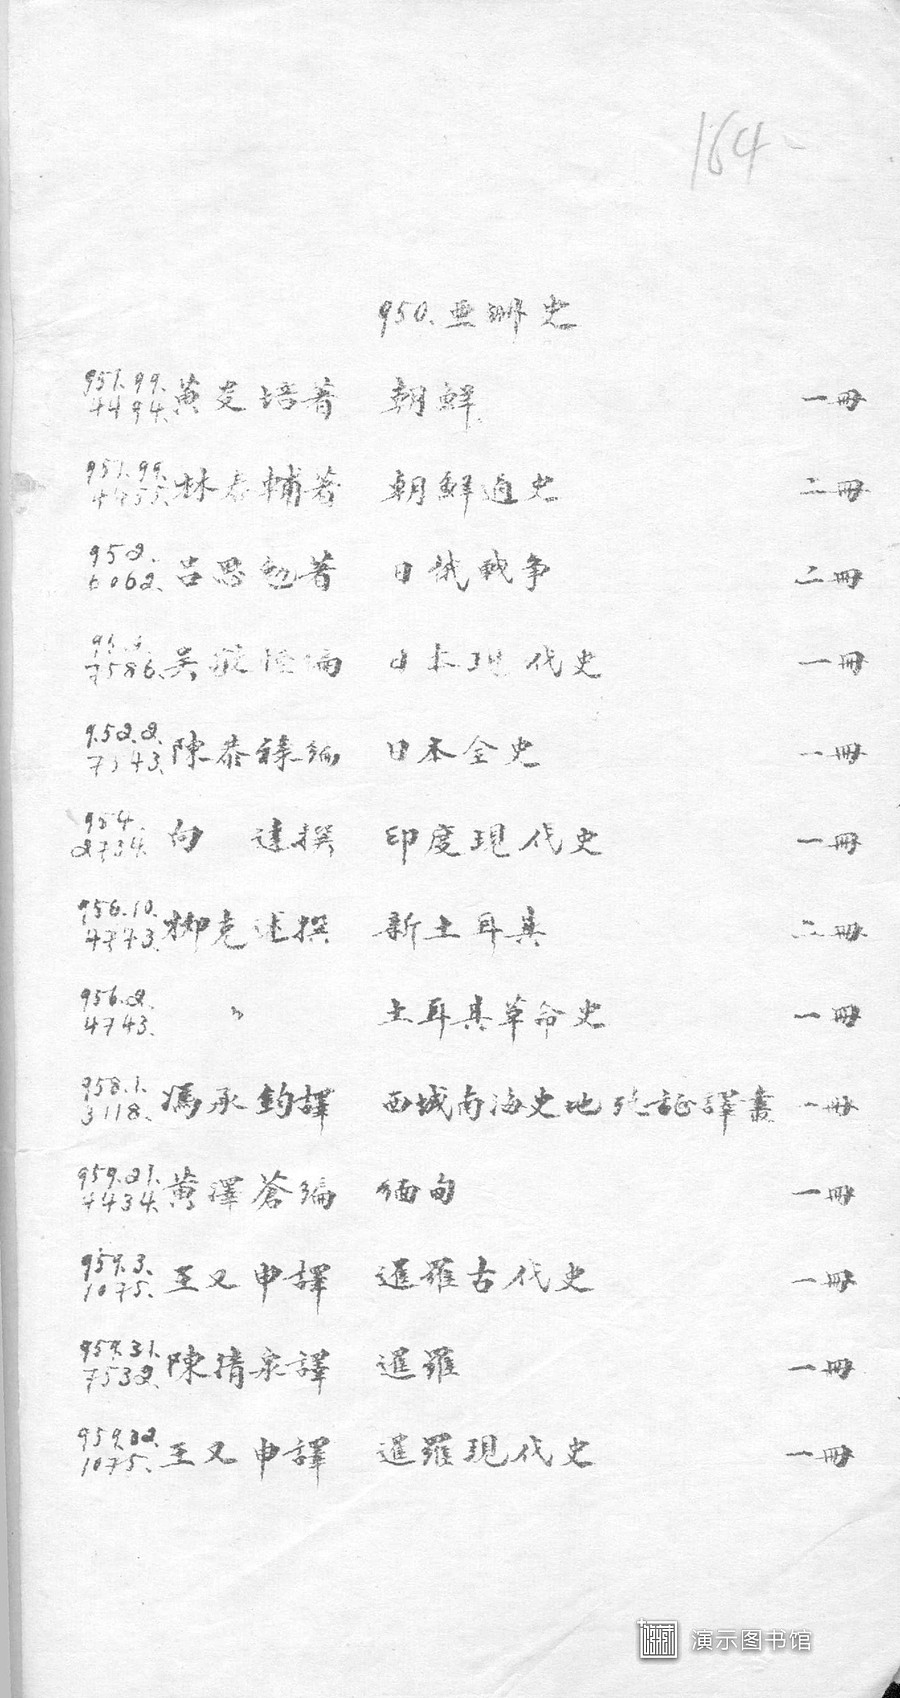 164
950. 亚洲史
951.99. 4494. 黄炎培著 朝鮮 一冊
951.99. 林泰輔著 朝鮮通史 二冊
952. 6062. 呂思勉著 日俄戰争 二冊
7586. 吴 編 日本現代史 一冊
952.2. 7543. 陳恭祿編 日本全史 一冊
954. 2734. 向 達撰 印度現代史 一冊
956.10. 4743. 柳克述撰 新土耳其 二冊
956.2. 4743. 〃 土耳其革命史 一冊
958.1. 3118. 馮承鈞譯 西域南海史地攷証譯叢 一冊
959.21. 4434. 黄澤蒼編 缅甸 一冊
959.3. 1075. 王又申譯 暹羅古代史 一冊
959.31. 7532. 陳清泉譯 暹羅 一冊
959.32. 1075. 王又申譯 暹羅現代史 一冊
演示图书馆